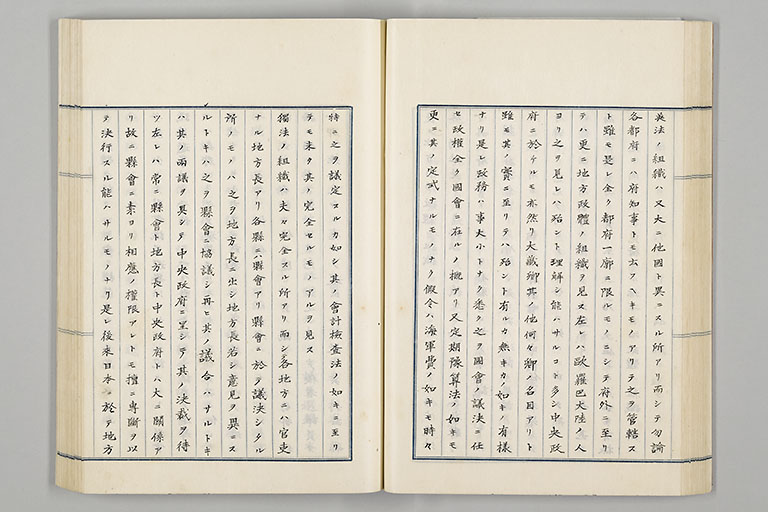 英法ノ組織ハ又大ニ他國ト異ニスル所アリ而シテ勿論
各都府ニハ府知事トモ云フヘキモノアリテ之ヲ管轄ス
ト雖モ是レ全ク都府一廓ニ限ルモノニシテ府外ニ至リ
テハ更ニ地方政體ノ組織ヲ見ス左レハ歐羅巴大陸ノ人
ヨリ之ヲ見レハ殆ント理解シ能ハサルコト多シ中央政
府ニ於ケルモ亦然リ大藏卿其ノ他何々卿ノ名目アリト
雖モ其ノ實ニ至リテハ殆ント有ルカ無キカノ如キノ有樣
ナリ是レ政務ハ事大小トナク悉ク之ヲ國會ノ議決ニ任
セ政權全ク國會ニ在ルノ概アリ又定期豫算法ノ如キモ
更ニ其ノ定式ナルモノナク假令ハ海軍費ノ如キモ時々
特ニ之ヲ議定スルカ如シ其ノ會計檢査法ノ如キニ至リ
テモ未タ其ノ完全セルモノアルヲ見ス
獨法ノ組織ハ夫々完全スル所アリ而シ各地方ニハ官吏
ナル地方長アリ各縣ニハ縣會アリ縣會ニ於テ議決シタル
所ノモノハ之ヲ地方長ニ出シ地方長若シ意見ヲ異ニス
ルトキハ之ヲ縣會ニ協議シ再ヒ其ノ議合ハサルトキ
ハ其ノ兩議ヲ具シテ中央政府ニ呈シテ其ノ決裁ヲ待
ツ左レハ常ニ縣會ト地方長ト中央政府トハ大ニ關係ア
リ故ニ縣會ニ素ヨリ相應ノ權限アレトモ擅ニ專斷ヲ以
テ決行スル能ハサルモノナリ是レ後來日本ニ於テ地方